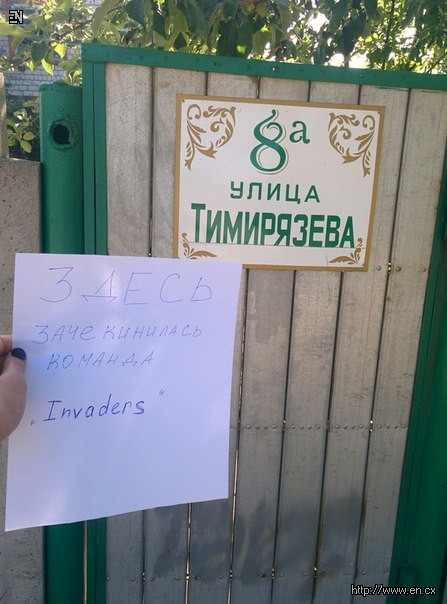 EN
8а
УЛИЦА
ТИМИРЯЗЕВА
ЗДЕСЬ
ЗАЧЕКИНИЛАСЬ
КОМАНДА
„Invaders"
http://www.en.cx